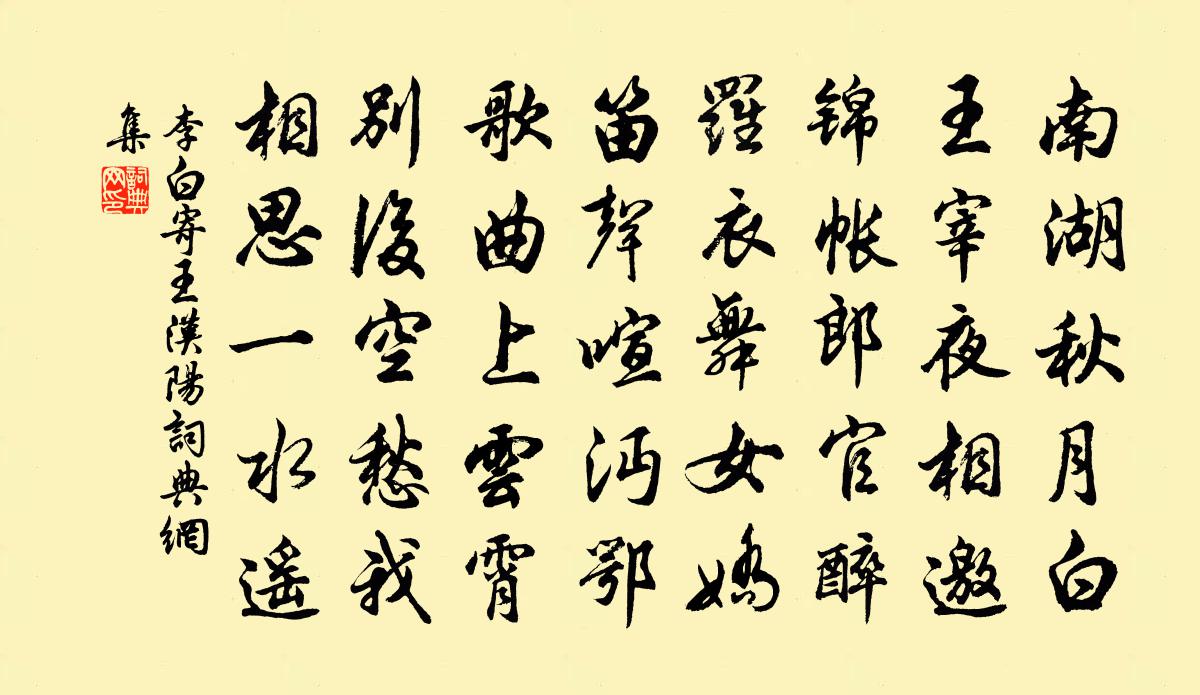 南湖秋月白
王宰夜相邀
錦帳郎官醉
羅衣舞女嬌
笛聲喧沔鄂
歌曲上雲霄
別後空愁我
相思一水遙
李白寄王漢陽詞典網
集
詞典網印